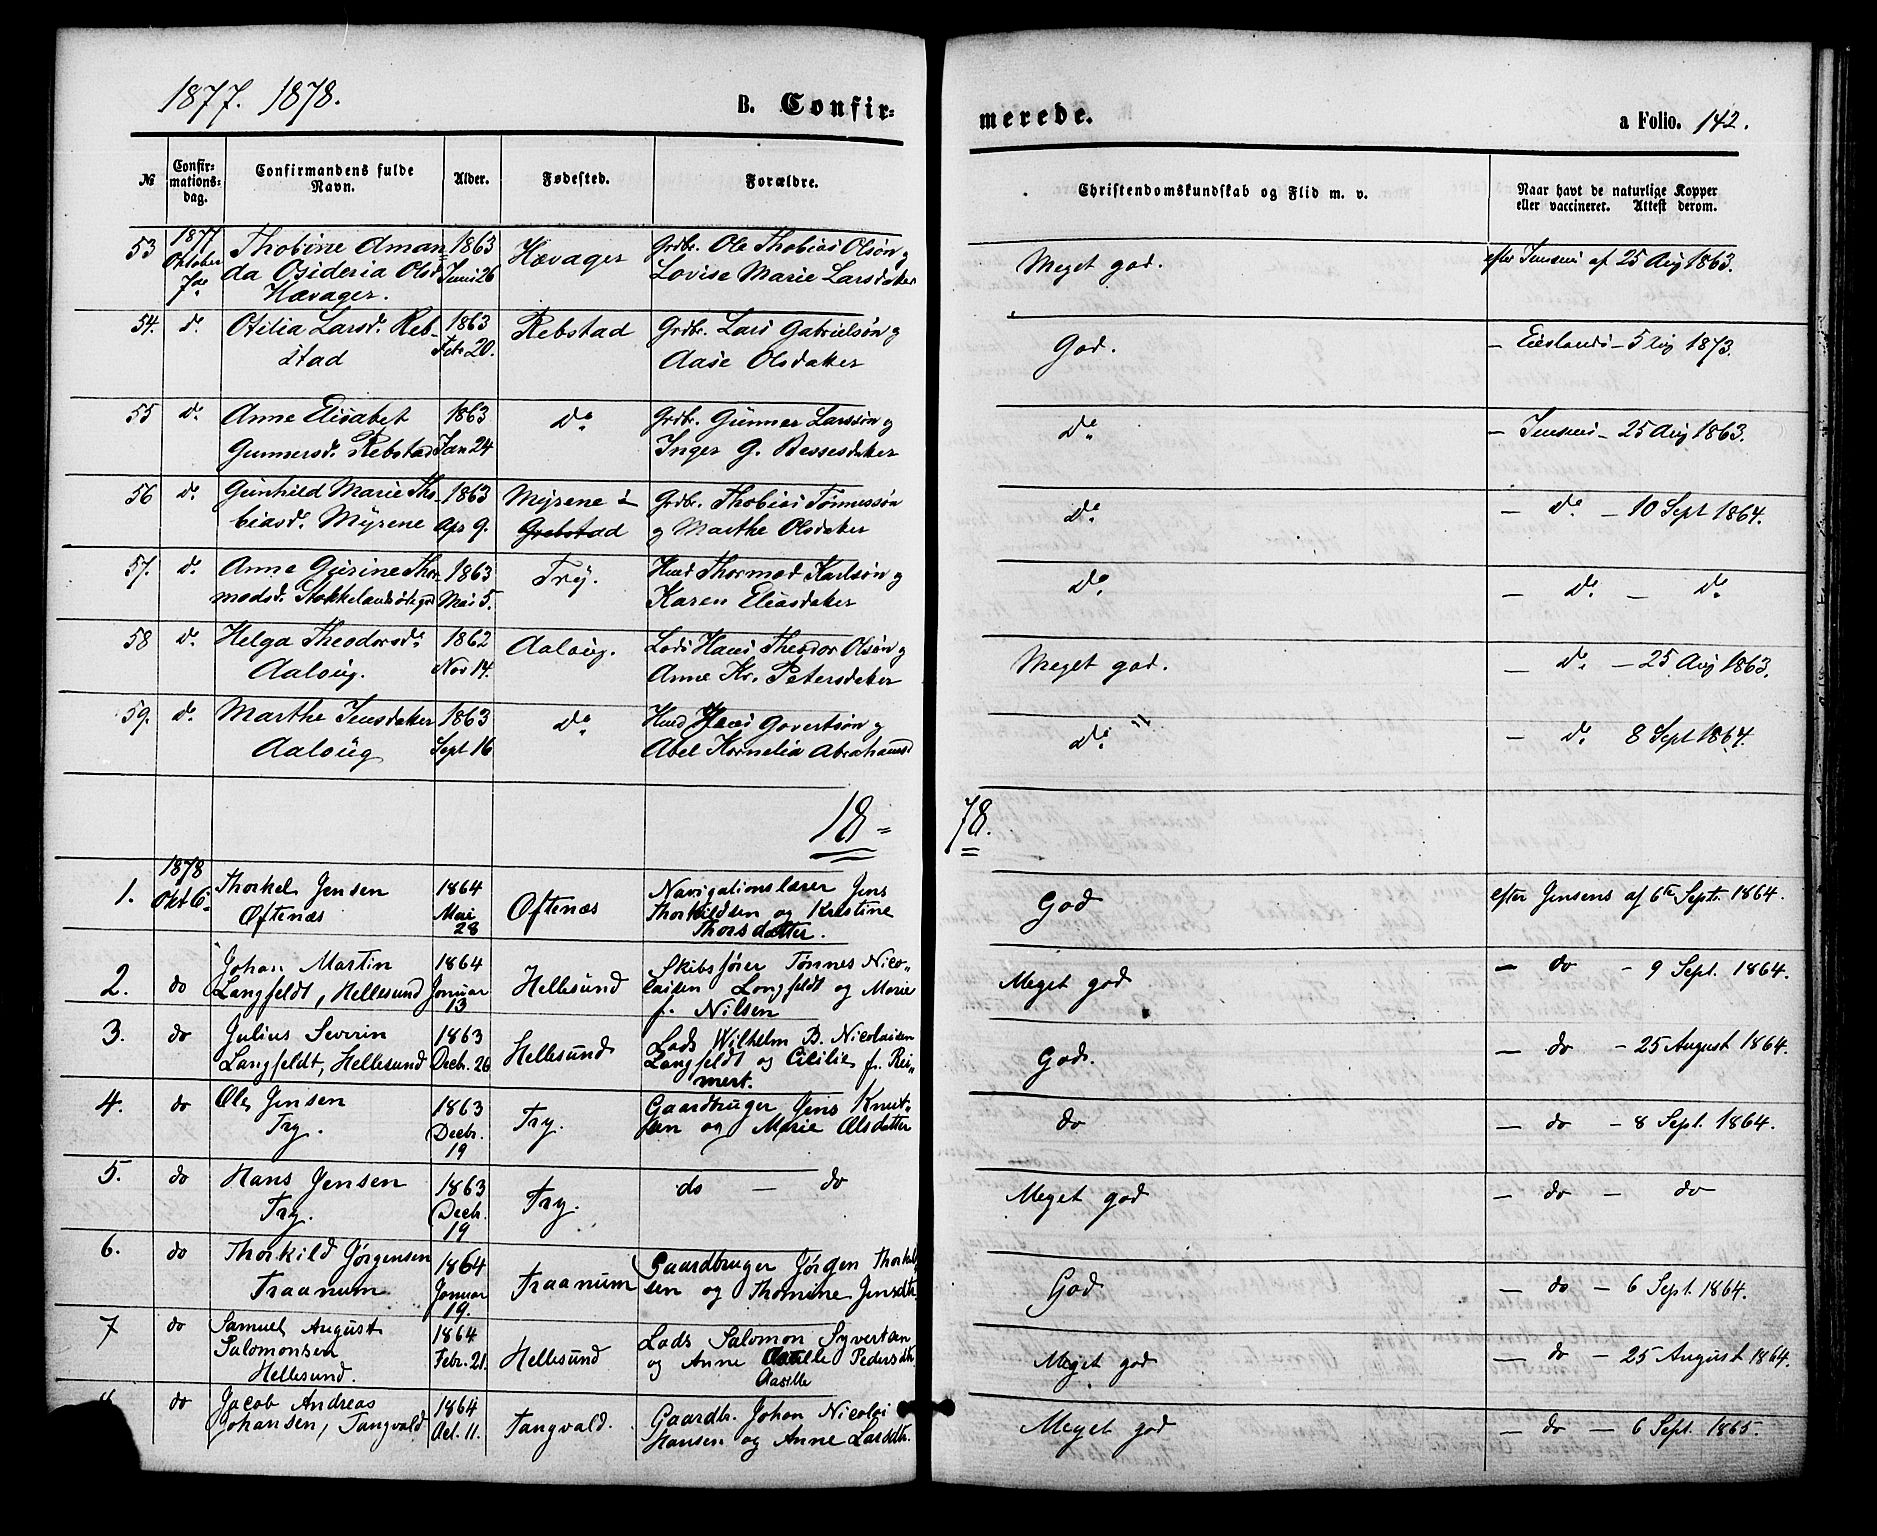 1877. 1878.
B. Confir=
merede.
a Folio. 142.
№
Confir=
mations=
dag.
Confirmandens fulde
Navn.
Alder.
Fødested.
Forældre.
Christendomskundskab og Flid m. v.
Naar havt de naturlige Kopper
eller vaccineret. Attest derom.
53 1877 Oktober 7de
Thobine Aman=
da Osideria Olsd.
Hævager.
1863
Juni 26
Hævager
Grdbr. Ole Thobias Olsøn og
Lovise Marie Larsdatter
Meget god.
efter Jensens af 25 Aug 1863.
54. do
Otilia Larsd. Reb-
stad
1863
Feb 20.
Rebstad
Grdbr. Lars Gabrielsøn og
Aase Olsdatter
God.
— Eieslands — 5 Aug 1873.
55 do
Anne Elisabet
Gunnersd. Rebstad
1863
Jan 24
do
Grdbr. Gunner Larssøn og
Inger G. Bessesdatter
do
— Jensens — 25 Aug 1863.
56 do
Gunhild Marie Tho-
biasd. Myrene
1863
Apr 9.
Myrene i
Grebstad
Grdbr. Thobias Tønnessøn
og Marthe Olsdatter
do
— do — 10 Sept 1864.
57. do
Anne Gurine Thor-
modsd. Stokkelands
1863
Mai 5.
Try.
Husd Thormod Karlsøn og
Karen Eliasdatter
do
— do — do
58 do
Helga Theodorsd.
Aaloug.
1862
Nov 14.
Aaloug.
Lods Hans Theodor Olsøn og
Anne Kr. Petersdatter
Meget god.
— do — 25 Aug 1863.
59. do
Marthe Jensdatter
Aaloug
1863
Sept 16
do
Husd Jens Govertsøn og
Abel Kornelia Abrahamsd
do
— do 8 Sept 1864.
18=
78.
1. 1878 Okt 6.
Thorkel Jensen
Øftenæs
1864
Mai
28
Øftenæs
Navigationslærer Jens
Thorkildsen og Kristine
Thorsdatter.
God
efter Jensens af 6te Septr. 1864.
2. do
Johan Martin
Langfeldt, Hellesund
1864
Januar
13
Hellesund
Skibsfører Tønnes Nico„
laisen Langfeldt og Marie
f. Nilsen
Meget god
— do — 9 Sept. 1864.
3. do
Julius Severin
Langfeldt, Hellesund
1863
Decb. 26
Hellesund
Lods Wilhelm B. Nicolaisen
Langfeldt og Cicilie f. Rei„
mert.
God.
— do — 25 August 1864.
4. do
Ole Jensen
Try.
1863
Decbr.
19
Try.
Gaardbruger Jens Knut„
sen og Marie Olsdatter
do
— do — 8 Sept. 1864.
5. do
Hans Jensen
Try.
1863
Decbr.
19
Try.
do — do
Meget god
— do — do
6. do
Thorkild Jørgensen
Traanum
1864
Januar
19.
Traanum
Gaardbruger Jørgen Thorkel„
sen og Thomine Jensdtr.
God
— do — 6 Sept. 1864.
7 do
Samuel August
Salomonsen
Hellesund.
1864
Febr. 21.
Hellesund
Lods Salomon Syvertsen
og Anne Pedersdtr
Aasille
Meget god
— do — 25 August 1864.
do
Jacob Andreas
Johansen, Tangvald
1864
Oct. 11.
Tangvald.
Gaardbr. Johan Nicolai
Hansen og Anne Larsdtr.
Meget god
— do — 6 Sept. 1865.